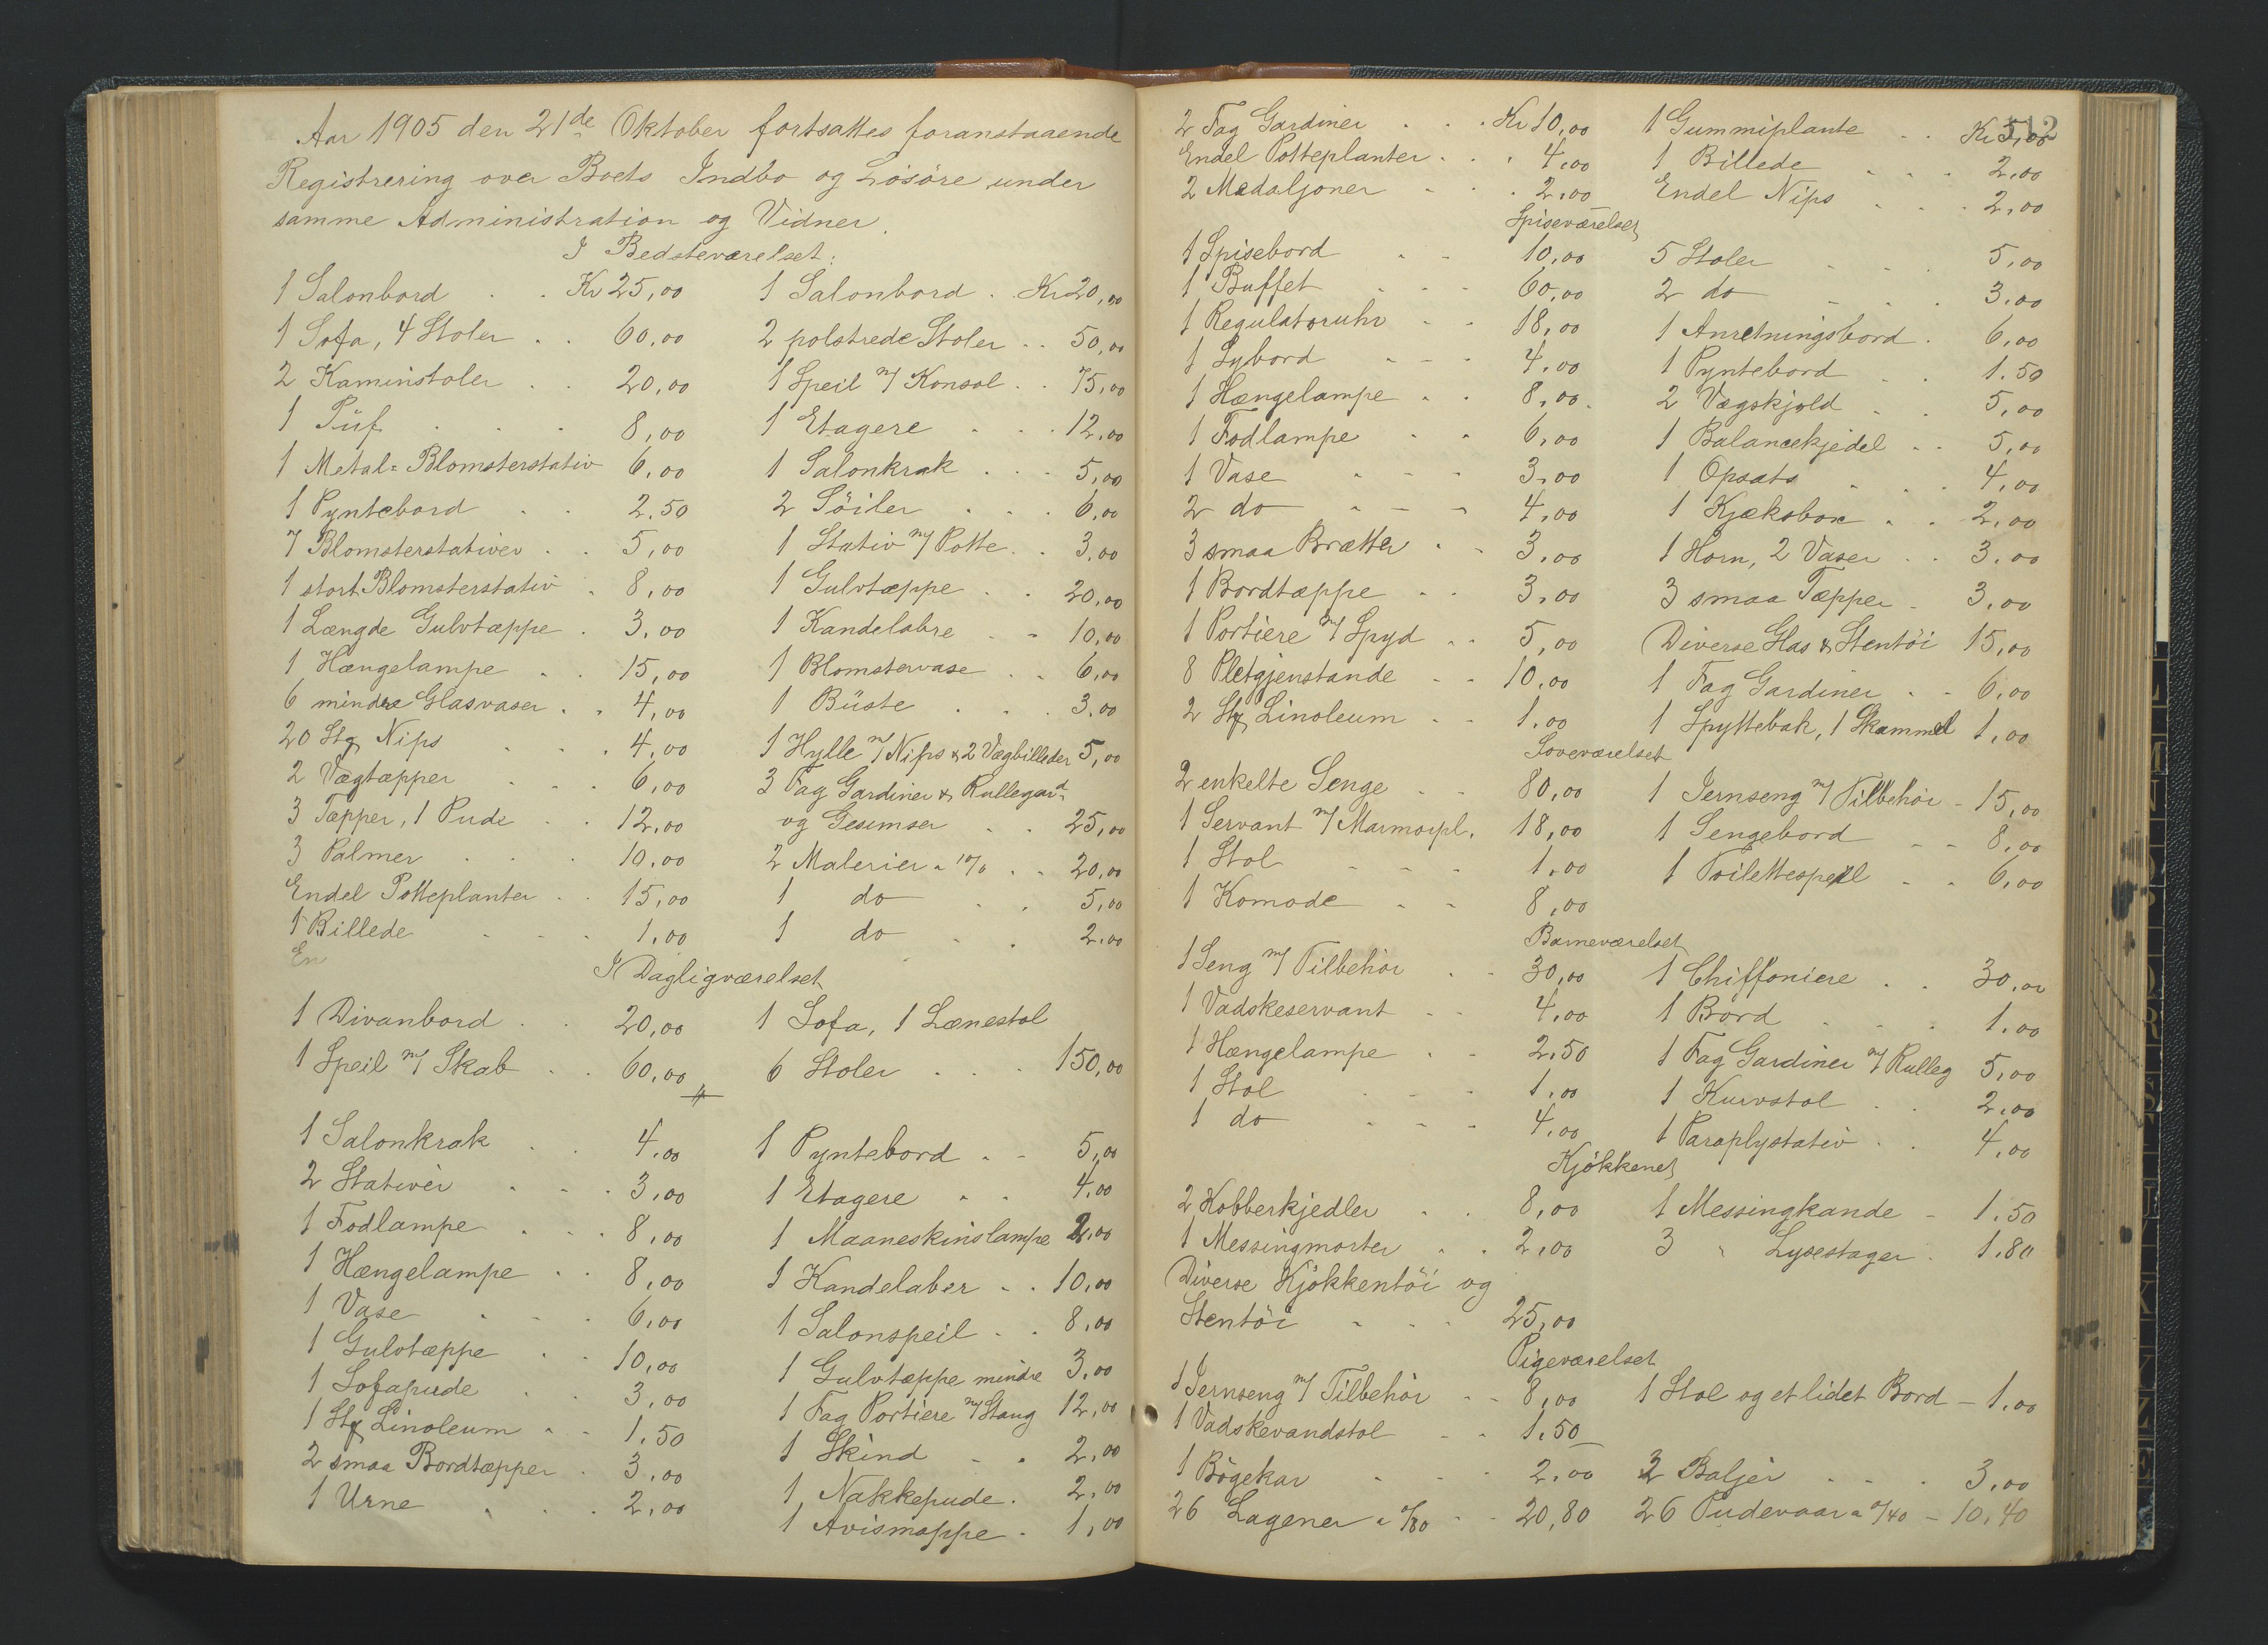 Aar 1905 den 21de Oktober fortsattes foranstaaende
Registrering over Boets Indbo og Løsöre under
samme Administration og Vidner.
I Bedsteværelset:
1 Salonbord . . Kr 25,00
1 Sofa, 4 Stoler . . 60,00
2 Kaminstoler . . 20,00
1 Püf . . . 8,00
1 Metal= Blomsterstativ 6,00
1 Pyntebord . . 2.50
7 Blomsterstativer . . 5,00
1 stort Blomsterstativ . 8,00
1 Længde Gulvtæppe . 3,00
1 Hængelampe . . 15,00
6 mindre Glasvaser . . 4,00
20 Stg Nips . . . 4,00
2 Vægtæpper . . 6,00
3 Tæpper, 1 Pude . . 12,00
3 Palmer . . . 10,00
Endel Potteplanter . . 15,00
1 Billede . . . 1,00
En
1 Salonbord . Kr 20,00
2 polstrede Stoler . . 50,00
1 Speil m/ Konsol . . 75,00
1 Etagere . . . 12,00
1 Salonkrak . . . 5,00
2 Söiler . . . 6,00
1 Stativ m/ Potte . . 3,00
1 Gulvtæppe . . 20,00
1 Kandelabre . . 10,00
1 Blomstervase . . 6,00
1 Büste . . . 3,00
1 Hylle m/ Nips & 2 Vægbilleder 5,00
3 Fag Gardiner & Rullegard
og Gesimser . . 25,00
2 Malerier a 10/0 . . 20,00
1 do . . 5,00
1 do . . 2,00
I Dagligværelset
1 Divanbord . . 20,00
1 Speil m/ Skab . . 60,00
1 Salonkrak . . 4,00
2 Stativer . . . 3,00
1 Fodlampe . . . 8,00
1 Hængelampe . . 8,00
1 Vase . . . 6,00
1 Gulvtæppe . . 10,00
1 Sofapude . . 3,00
1 Stg Linoleum . . 1.50
2 smaa Bordtæpper . 3,00
1 Urne . . . 2,00
1 Sofa, 1 Lænestol
6 Stoler . . . 150,00
1 Pyntebord . . 5,00
1 Etagere . . 4,00
1 Maaneskinslampe 2,00
1 Kandelaber . . 10,00
1 Salonspeil . . 8,00
1 Gulvtæppe mindre 3,00
1 Fag Portiere m/ Stang 12,00
1 Skind . . 2,00
1 Nakkepude . 2,00
1 Avismappe . 1,00
512
2 Fag Gardiner . . . Kr 10,00
Endel Potteplanter . . . 4,00
2 Medaljoner . . . 2,00
1 Gummiplante . . Kr 5,00
1 Billede . . . 2,00
Endel Nips . . . 2,00
Spiseværelset
1 Spisebord . . 10,00
1 Buffet . . . 60,00
1 Regulatoruhr . . 18,00
1 Sybord . . . 4,00
1 Hængelampe . . 8,00
1 Fodlampe . . 6,00
1 Vase . . . 3,00
2 do . . . 4,00
3 smaa Brætter . . 3,00
1 Bordtæppe . . 3,00
1 Portiere m/ Spyd . . 5,00
8 Pletgjenstande . . 10,00
2 Stg Linoleum . . 1,00
5 Stoler . . . 5,00
2 do . . . 3,00
1 Anretningsbord . 6,00
1 Pyntebord . . 1.50
2 Vægskjold . . 5,00
1 Balancekjedel . . 5,00
1 Opsats . . . 4,00
1 Kjæksboxe . . 2,00
1 Horn, 2 Vaser . . 3,00
3 smaa Tæpper . 3,00
Diverse Glas & Stentöi 15,00
1 Fag Gardiner . . 6,00
1 Spyttebak, 1 Skammel 1,00
Soveværelset
2 enkelte Senge . . 80,00
1 Servant m/ Marmorpl. 18,00
1 Stol . . . 1,00
1 Komode . . 8,00
1 Jernseng m/ Tilbehör - 15,00
1 Sengebord . . 8,00
1 Toilettespeil . . 6,00
Barneværelset
1 Seng m/ Tilbehör . . 30,00
1 Vadskeservant . . 4,00
1 Hængelampe . . 2,50
1 Stol . . . 1,00
1 do . . . 4,00
1 Chiffoniere . . 30,00
1 Bord . . . 1,00
1 Fag Gardiner m/ Rulleg 5,00
1 Kurvstol . . 2,00
1 Paraplystativ . . 4,00
Kjökkenet
2 Kobberkjedler . . 8,00
1 Messingmorter . . 2,00
Diverse Kjökkentöi og
Stentöi . . . 25,00
1 Messingkande - 1.50
3 " Lysestager . 1.80
Pigeværelset
1 Jernseng m/ Tilbehör . . 8,00
1 Vadskevandstol . . 1.50
1 Stol og et lidet Bord - 1,00
1 Bögekar . . . 2,00
26 Lagener a 0/80 . . 20,80
2 Baljer . . . 3,00
26 Pudevaar a 0/40 - 10,40